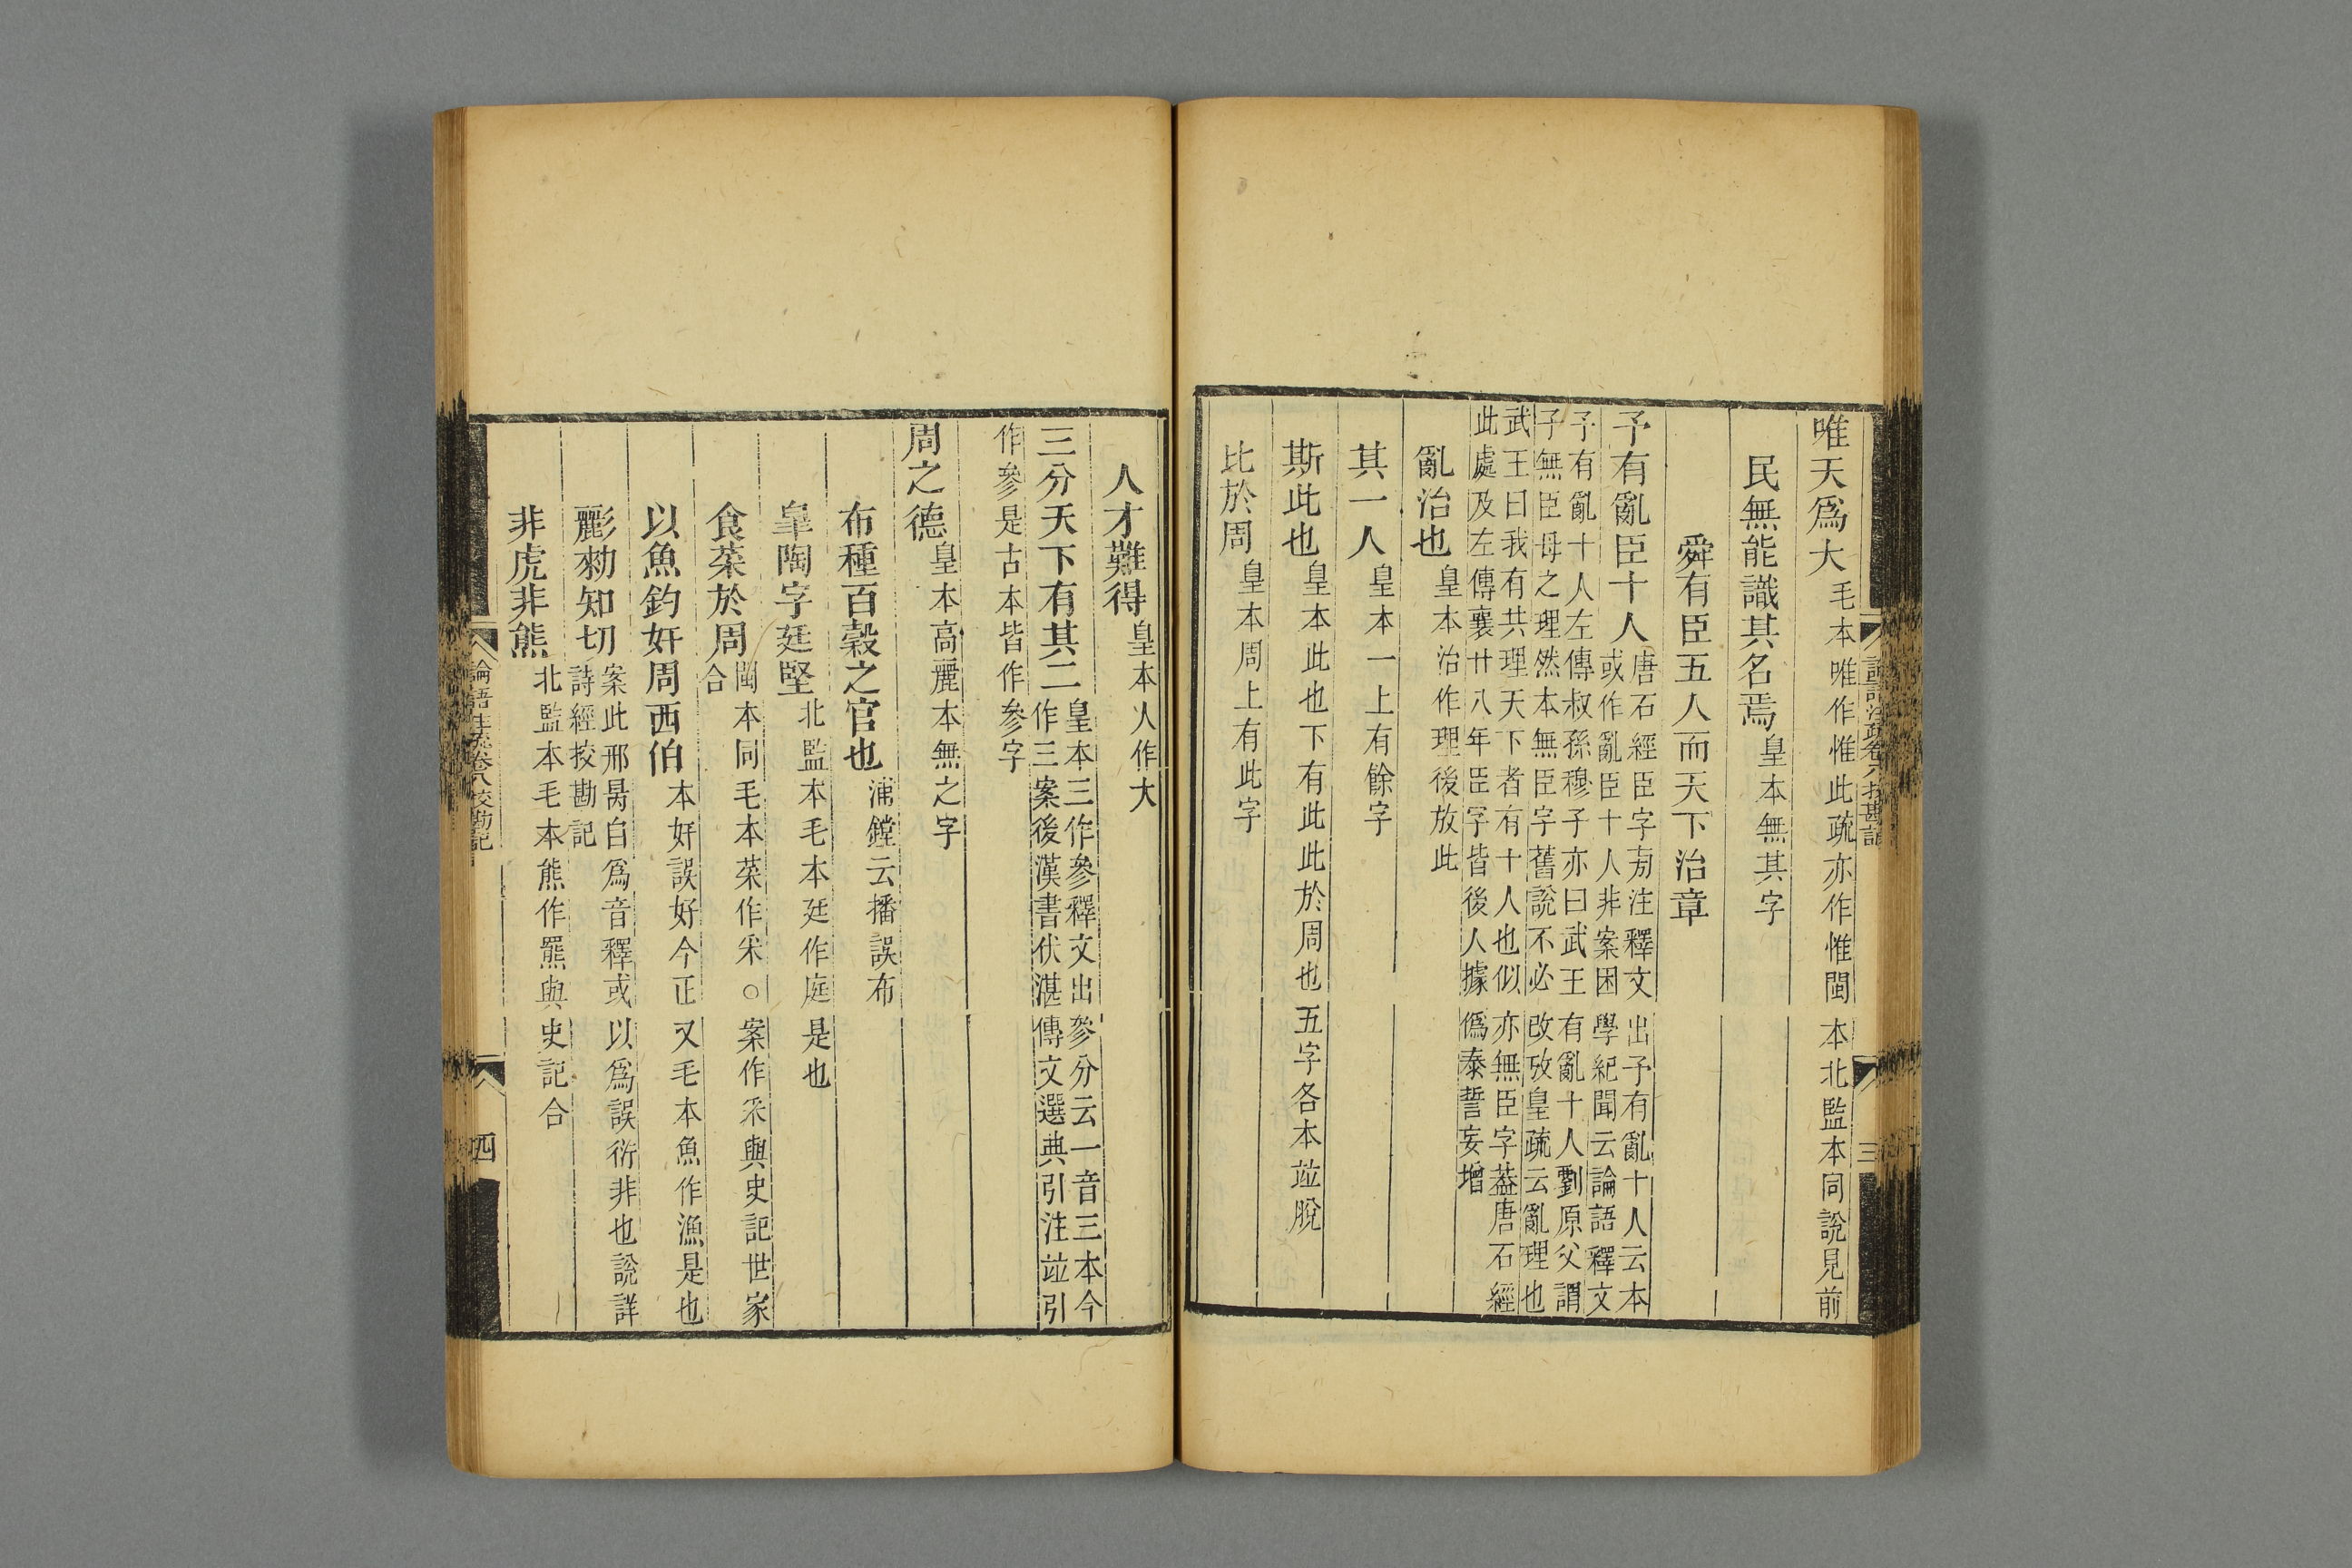 唯天爲大毛本唯作惟此疏亦作惟閩本北監本同說見前
民無能識其名焉皇本無其字
舜有臣五人而天下治章
予有亂臣十人唐石經臣字㫄注釋文出予有亂十人云本
或作亂臣十人非案困學紀聞云論語釋文
予有亂十人左傳叔孫穆子亦曰武王有亂十人劉原父謂
子無臣母之理然本無臣字舊說不必改攷皇疏云亂理也
武王曰我有共理天下者有十人也似亦無臣字葢唐石經
此處及左傳襄廿八年臣字皆後人據僞泰誓妄增
亂治也皇本治作理後放此
其一人皇本一上有餘字
斯此也皇本此也下有此此於周也五字各本竝脫
比於周皇本周上有此字
人才難得皇本人作大
三分天下有其二皇本三作參釋文出參分云一音三本今
作三案後漢書伏湛傳文選典引注竝引
作參是古本皆作參字
周之德皇本高麗本無之字
布種百穀之官也浦鏜云播誤布
皐陶字廷堅北監本毛本廷作庭是也
食菜於周閩本同毛本菜作采○案作采與史記世家
合
以魚釣奸周西伯本奸誤好今正又毛本魚作漁是也
彲勑知切案此邢昺自爲音釋或以爲誤衍非也說詳
詩經挍勘記
非虎非熊北監本毛本熊作羆與史記合
論語注疏卷八校勘記
四
三